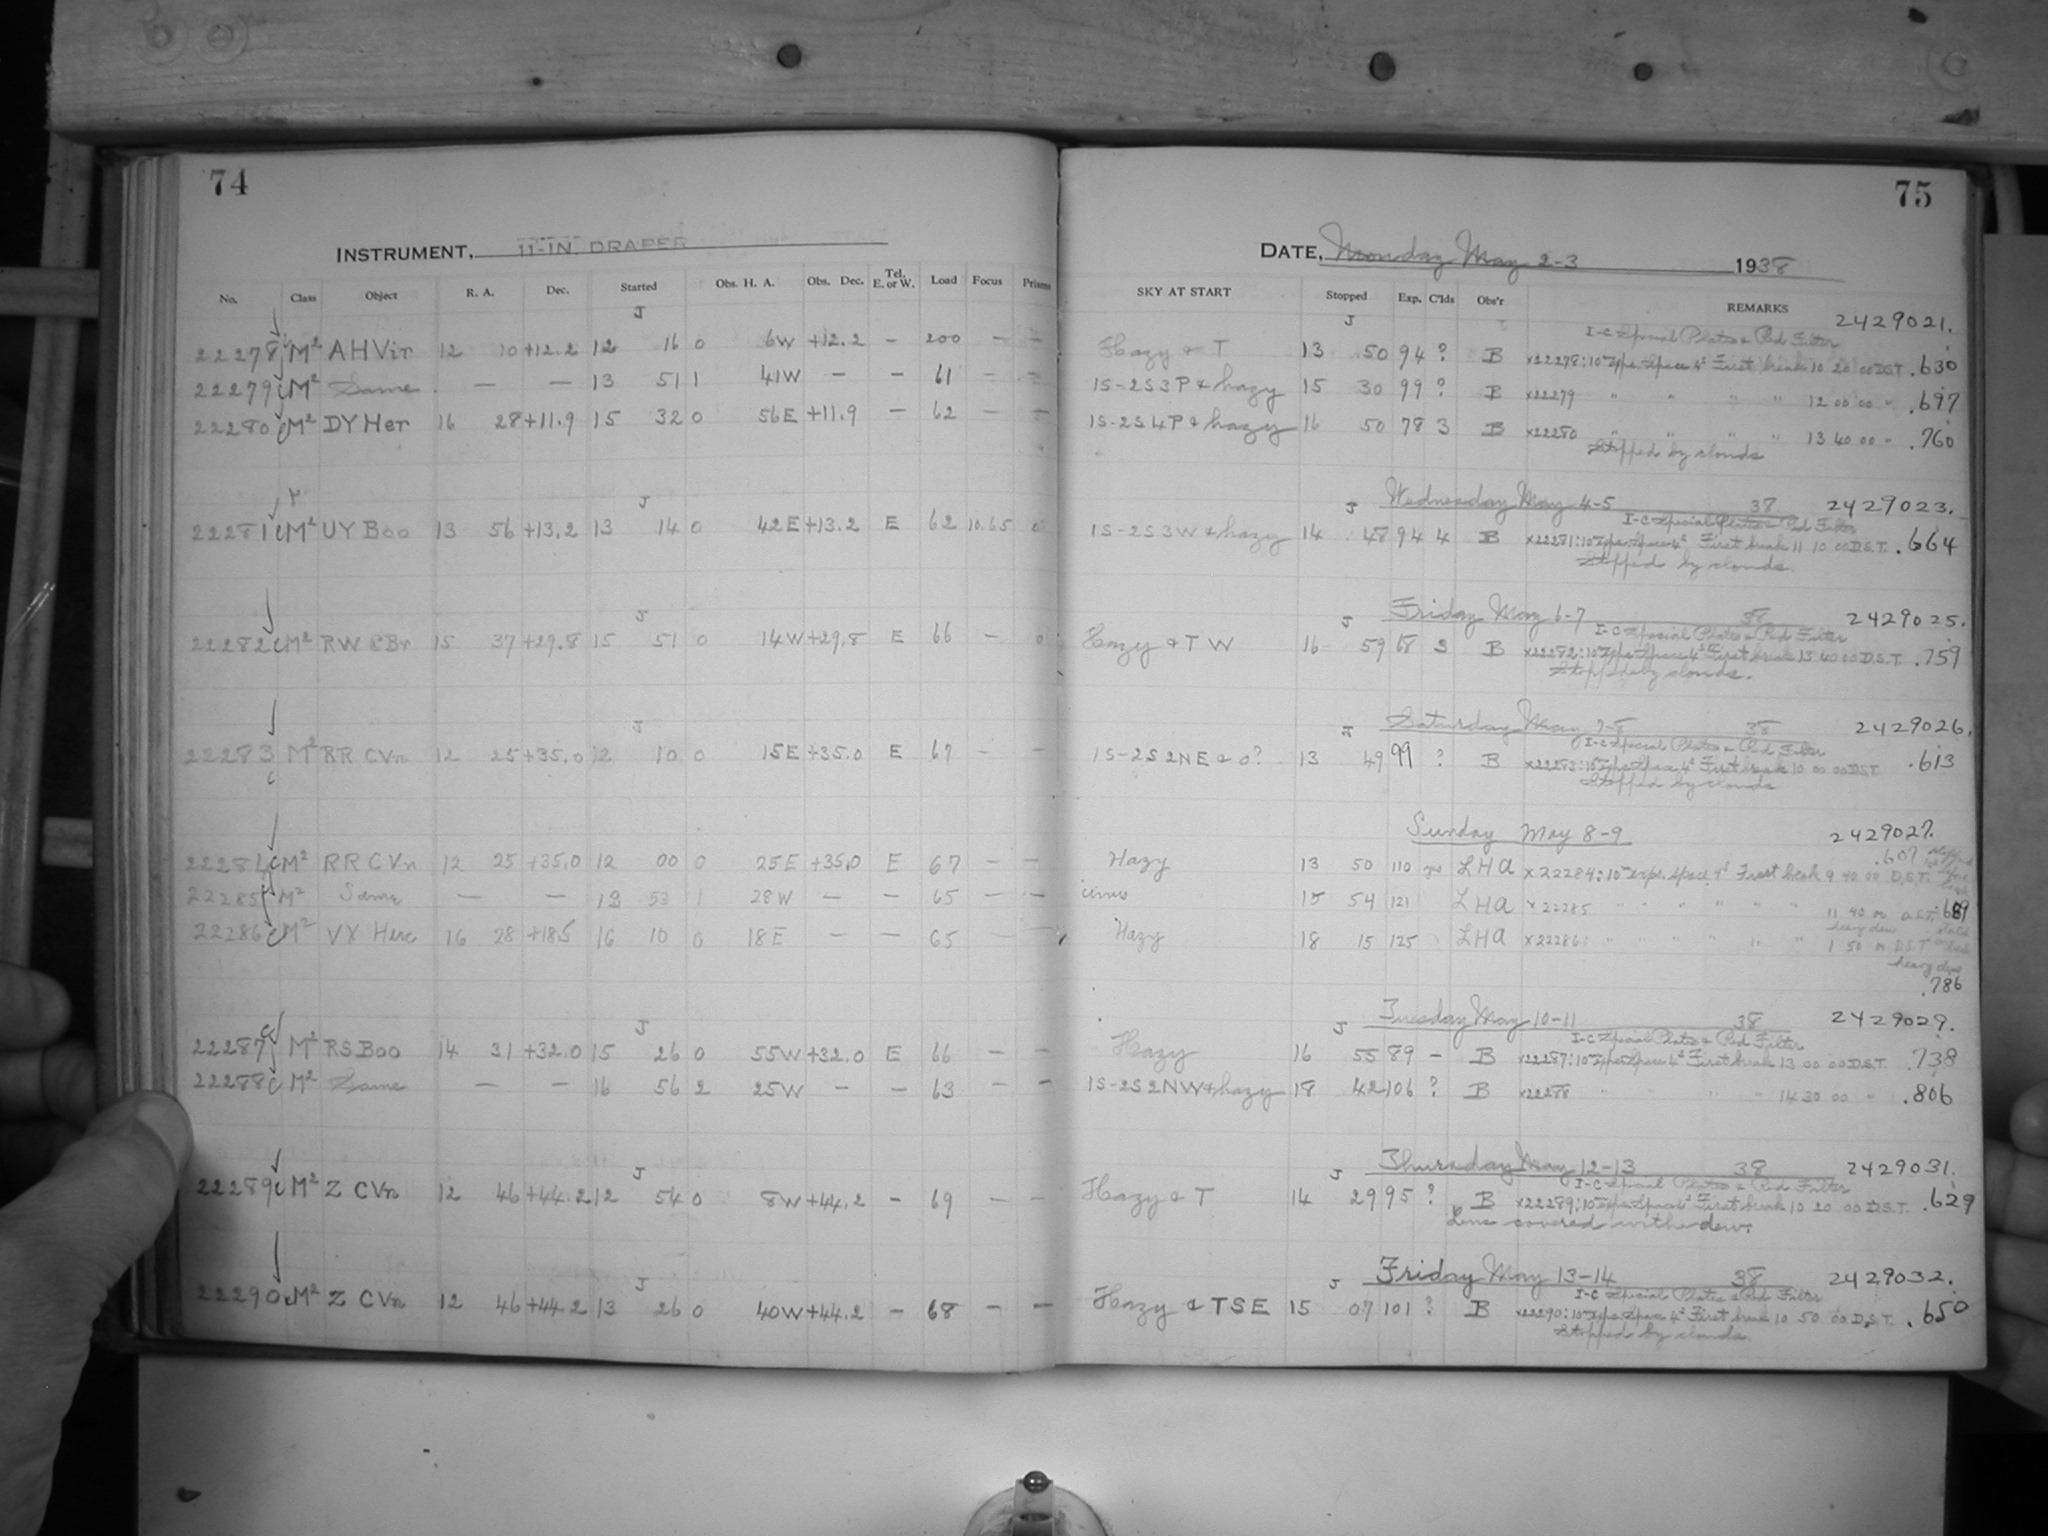 74
INSTRUMENT, 11-IN. DRAPER
No. Class Object R. A. Dec. Started Obs. H. A. Obs. Dec. Tel. E. or W. Load Focus Prisms
J
22278 C M² AH Vir 12 10 +12.2 12 16 0 6W +12.2 — 200 — —
22279 C M² Same — — 13 51 1 41W — — 61 — —
22280 C M² DY Her 16 28 +11.9 15 32 0 56E +11.9 — 62 — —
J
22281 C M² UY Boo 13 56 +13.2 13 14 0 42E +13.2 E 62 10.65 0
J
22282 C M² RW CBr 15 37 +29.8 15 51 0 14W +29.8 E 66 — 0
J
22283 C M² RR CVn 12 25 +35.0 12 10 0 15E +35.0 E 67 — —
22284 C M² RR CVn 12 25 +35.0 12 00 0 25E +35.0 E 67 — —
22285 M² Same — — 13 53 1 28W — — 65 — —
22286 C M² VX Herc 16 28 +18.5 16 10 0 18E — — 65 — —
J
22287 C M² RS Boo 14 31 +32.0 15 26 0 55W +32.0 E 66 — —
22288 C M² Same — — 16 56 2 25W — — 63 — —
J
22289 C M² Z CVn 12 46 +44.2 12 54 0 8W +44.2 — 69 — —
J
22290 C M² Z CVn 12 46 +44.2 13 26 0 40W +44.2 — 68 — —
75
DATE, Monday May 2-3 1938
SKY AT START Stopped Exp. C'lds Obs'r REMARKS
J 2429021.
I-C Special Plates & Red Filter
Hazy & T 13 50 94 ? B x22278: 10 exps. Space 4ˢ First break 10 20 00 D.S.T. .630
1S-2S3P & hazy 15 30 99 ? B x22279 " " " " 12 00 00 " .697
1S-2S4P & hazy 16 50 78 3 B x22280 " " " " 13 40 00 " .760
Stopped by clouds
J Wednesday May 4-5 38 2429023.
I-C Special Plates & Red Filter
1S-2S3W & hazy 14 48 94 4 B x22281: 10 exps. Space 4ˢ First break 11 10 00 D.S.T. .664
Stopped by clouds.
J Friday May 6-7 38 2429025.
I-C Special Plates & Red Filter
Hazy & T W 16 59 68 3 B x22282: 10 exps. Space 4ˢ First break 13 40 00 D.S.T. .759
Stopped by clouds.
J Saturday May 7-8 38 2429026.
I-C Special Plates & Red Filter
1S-2S2NE & 0? 13 49 99 ? B x22283: 10 exps. Space 4ˢ First break 10 00 00 D.S.T. .613
Stopped by clouds
Sunday May 8-9 2429027.
.607
Hazy 13 50 110 yes LHA x22284: 10 exps. space 4ˢ First break 9 40 00 D.S.T.
cirrus 15 54 121 LHA x22285 " " " " " " 11 40 00 D.S.T. .689
heavy dew
Hazy 18 15 125 LHA x22286: " " " " " " 1 50 00 D.S.T.
heavy dew
.786
J Tuesday May 10-11 38 2429029.
I-C Special Plates & Red Filter
Hazy 16 55 89 — B x22287: 10 exps. Space 4ˢ First break 13 00 00 D.S.T. .738
1S-2S2NW & hazy 18 42 106 ? B x22288 " " " 14 30 00 " .806
J Thursday May 12-13 38 2429031.
I-C Special Plates & Red Filter
Hazy & T 14 29 95 ? B x22289: 10 exps. Space 4ˢ First break 10 20 00 D.S.T. .629
Lens covered with dew.
J Friday May 13-14 38 2429032.
I-C Special Plates & Red Filter
Hazy & TSE 15 07 101 ? B x22290: 10 exps. Space 4ˢ First break 10 50 00 D.S.T. .650
Stopped by clouds.